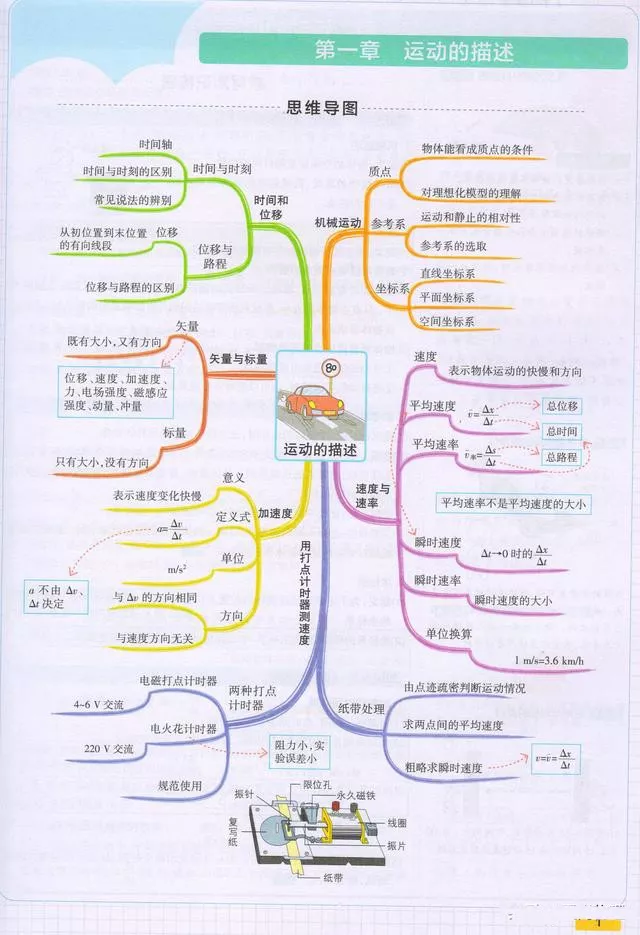 第一章 运动的描述
思维导图
时间轴
时间与时刻的区别
常见说法的辨别
时间与时刻
从初位置到末位置
的有向线段
位移
位移与路程的区别
位移与
路程
时间和
位移
机械运动
质点
物体能看成质点的条件
对理想化模型的理解
参考系
运动和静止的相对性
参考系的选取
坐标系
直线坐标系
平面坐标系
空间坐标系
矢量
既有大小,又有方向
位移、速度、加速度、
力、电场强度、磁感应
强度、动量、冲量
标量
只有大小,没有方向
矢量与标量
80
运动的描述
速度与
速率
速度
表示物体运动的快慢和方向
平均速度
v̄=Δx/Δt
总位移
总时间
平均速率
v率=Δs/Δt
总路程
平均速率不是平均速度的大小
瞬时速度
Δt→0 时的Δx/Δt
瞬时速率
瞬时速度的大小
单位换算
1 m/s=3.6 km/h
加速度
意义
表示速度变化快慢
定义式
a=Δv/Δt
a 不由 Δv、
Δt 决定
单位
m/s²
方向
与 Δv 的方向相同
与速度方向无关
用打点计时器测速度
两种打点
计时器
电磁打点计时器
4~6 V 交流
电火花计时器
220 V 交流
阻力小,实
验误差小
规范使用
纸带处理
由点迹疏密判断运动情况
求两点间的平均速度
粗略求瞬时速度
v=v̄=Δx/Δt
限位孔
振针
永久磁铁
复
写
纸
线圈
振片
纸带
1